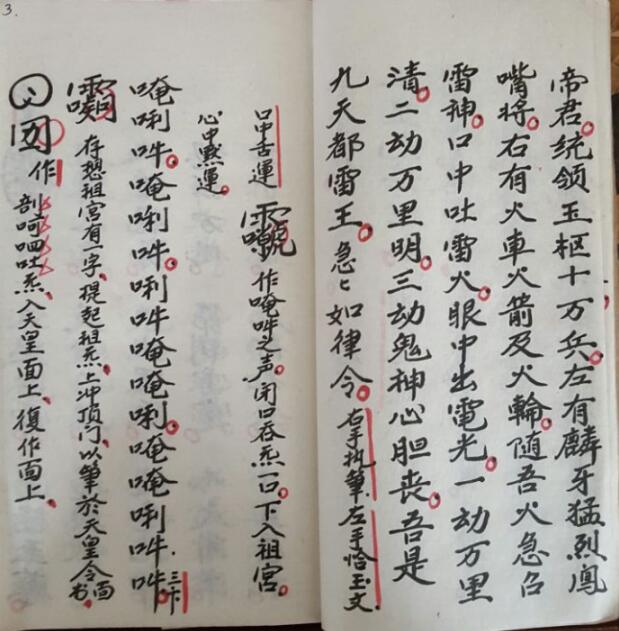 帝君。统领玉枢十万兵。左有麟牙猛烈鳳
嘴将。右有火車火箭及火輪。随吾火急召
雷神。口中吐雷火。眼中出電光。一动万里
清。二动万里明。三动鬼神心胆丧。吾是
九天都雷王。急々如律令。右手执筆.左手恰玉文.
口中舌運
心中黙運。
作唵吽之声。闭口吞炁一口。下入祖宫。
唵唎吽。唵唎吽。唎吽唵唵唎。唵唵唎吽吽.三卞
存想祖宫有一字、提起祖炁上冲頂门、以筆於天皇令面书。
作 剖 呬吐炁、入天皇面上、復作面上、
3.